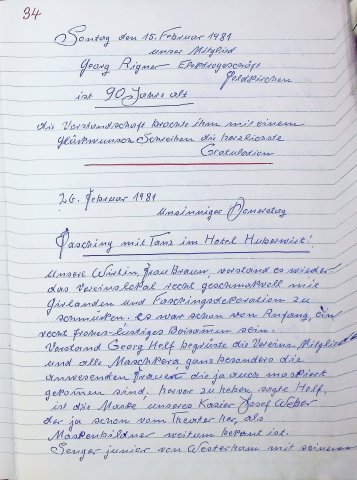 34
Sontag den 15. Februar 1981
unser Mitglied
Georg Rigner Elektrogeschäft
Feldkirchen
ist 90 Jahre alt
die Vorstandschaft brachte ihm mit einem
Glückwunsch Schreiben die herzlichste
Gratulation
26. Februar 1981
Unsinniger Donerstag
Fasching mit Tanz im Hotel Huberwirt!
Unsere Wirtin, Frau Brauer, verstand es wieder
das Vereinslokal recht geschmakvoll mit
Girlanden und Faschingsdekoration zu
schmüken. es war schon von Anfang, ein
recht frohes-lustiges Beisamen sein.
Vorstand Georg Helf begrüste die Vereins Mitglieder
und alle Maschkera ganz besonders die
anwesenden Frauen die ja auch maskiert
gekomen sind, hervor zu heben sagte Helf,
ist die Maske unseres Kasier Josef Weber
der ja schon vom Theater her, als
Maskenbildner weitum bekant ist.
Senger junior von Westerham mit seinem